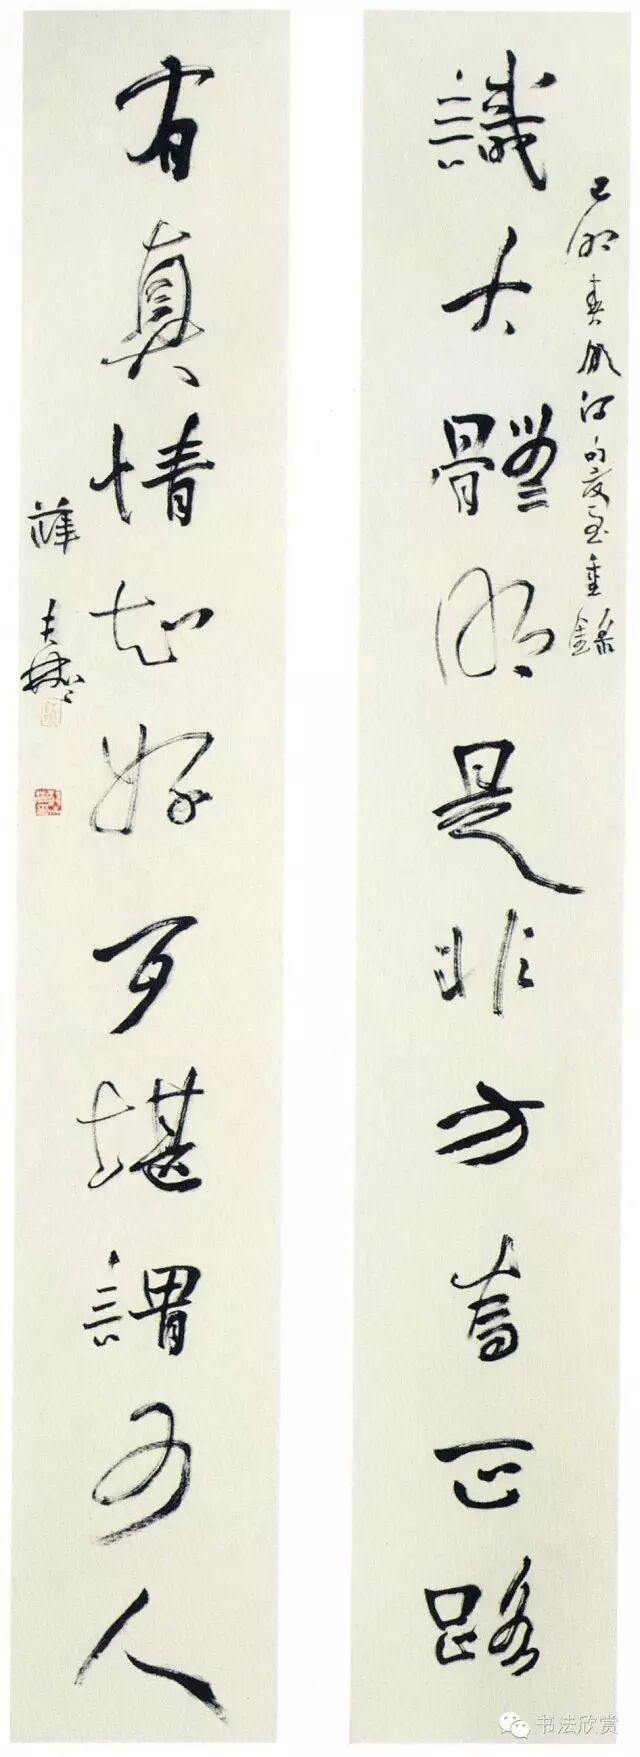 識大體明是非方正路
己卯春重錄
有真情知好歹堪謂可人
薛夫彬
书法欣赏